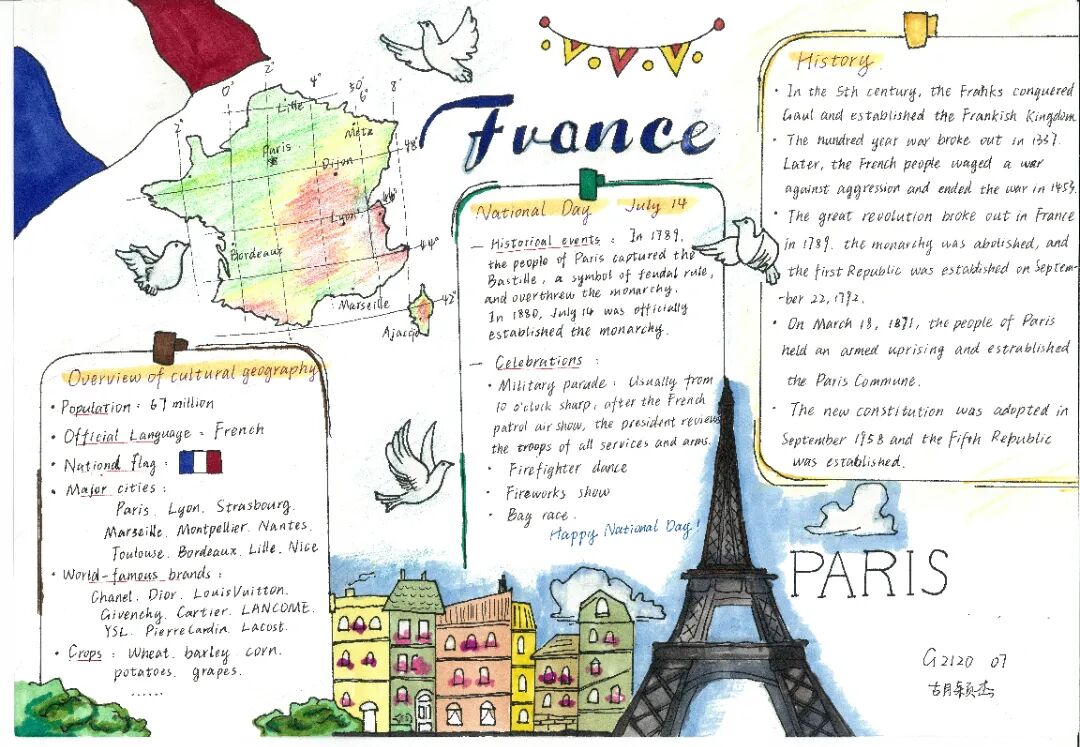 France
0°
2°
4°
50°
6°
8°
2°
Lille
Metz
Paris
48°
Dijon
46°
Lyon
44°
Bordeaux
42°
Marseille
Ajaccio
Overview of cultural geography
· Population : 67 million
· Official Language : French
· National flag :
· Major cities :
Paris. Lyon. Strasbourg.
Marseille. Montpellier. Nantes.
Toulouse. Bordeaux. Lille. Nice
· World-famous brands :
Chanel. Dior. LouisVuitton.
Givenchy. Cartier. LANCOME.
YSL. PierreCardin. Lacost.
· Crops : Wheat. barley. corn.
potatoes. grapes.
......
National Day July 14
— Historical events : In 1789,
the people of Paris captured the
Bastille, a symbol of feudal rule,
and overthrew the monarchy.
In 1880, July 14 was officially
established the monarchy.
— Celebrations :
· Military parade : Usually from
10 o'clock sharp, after the French
patrol air show, the president reviews
the troops of all services and arms.
· Firefighter dance
· Fireworks show
· Bag race.
Happy National Day!
History.
· In the 5th century, the Franks conquered
Gaul and established the Frankish Kingdom
· The hundred year war broke out in 1337.
Later, the French people waged a war
against aggression and ended the war in 1453.
· The great revolution broke out in France
in 1789. the monarchy was abolished, and
the first Republic was established on Septem-
-ber 22, 1792.
· On March 18, 1871, the people of Paris
held an armed uprising and estrablished
the Paris Commune.
· The new constitution was adopted in
September 1958 and the Fifth Republic
was established.
PARIS
G2120 07
胡颖杰